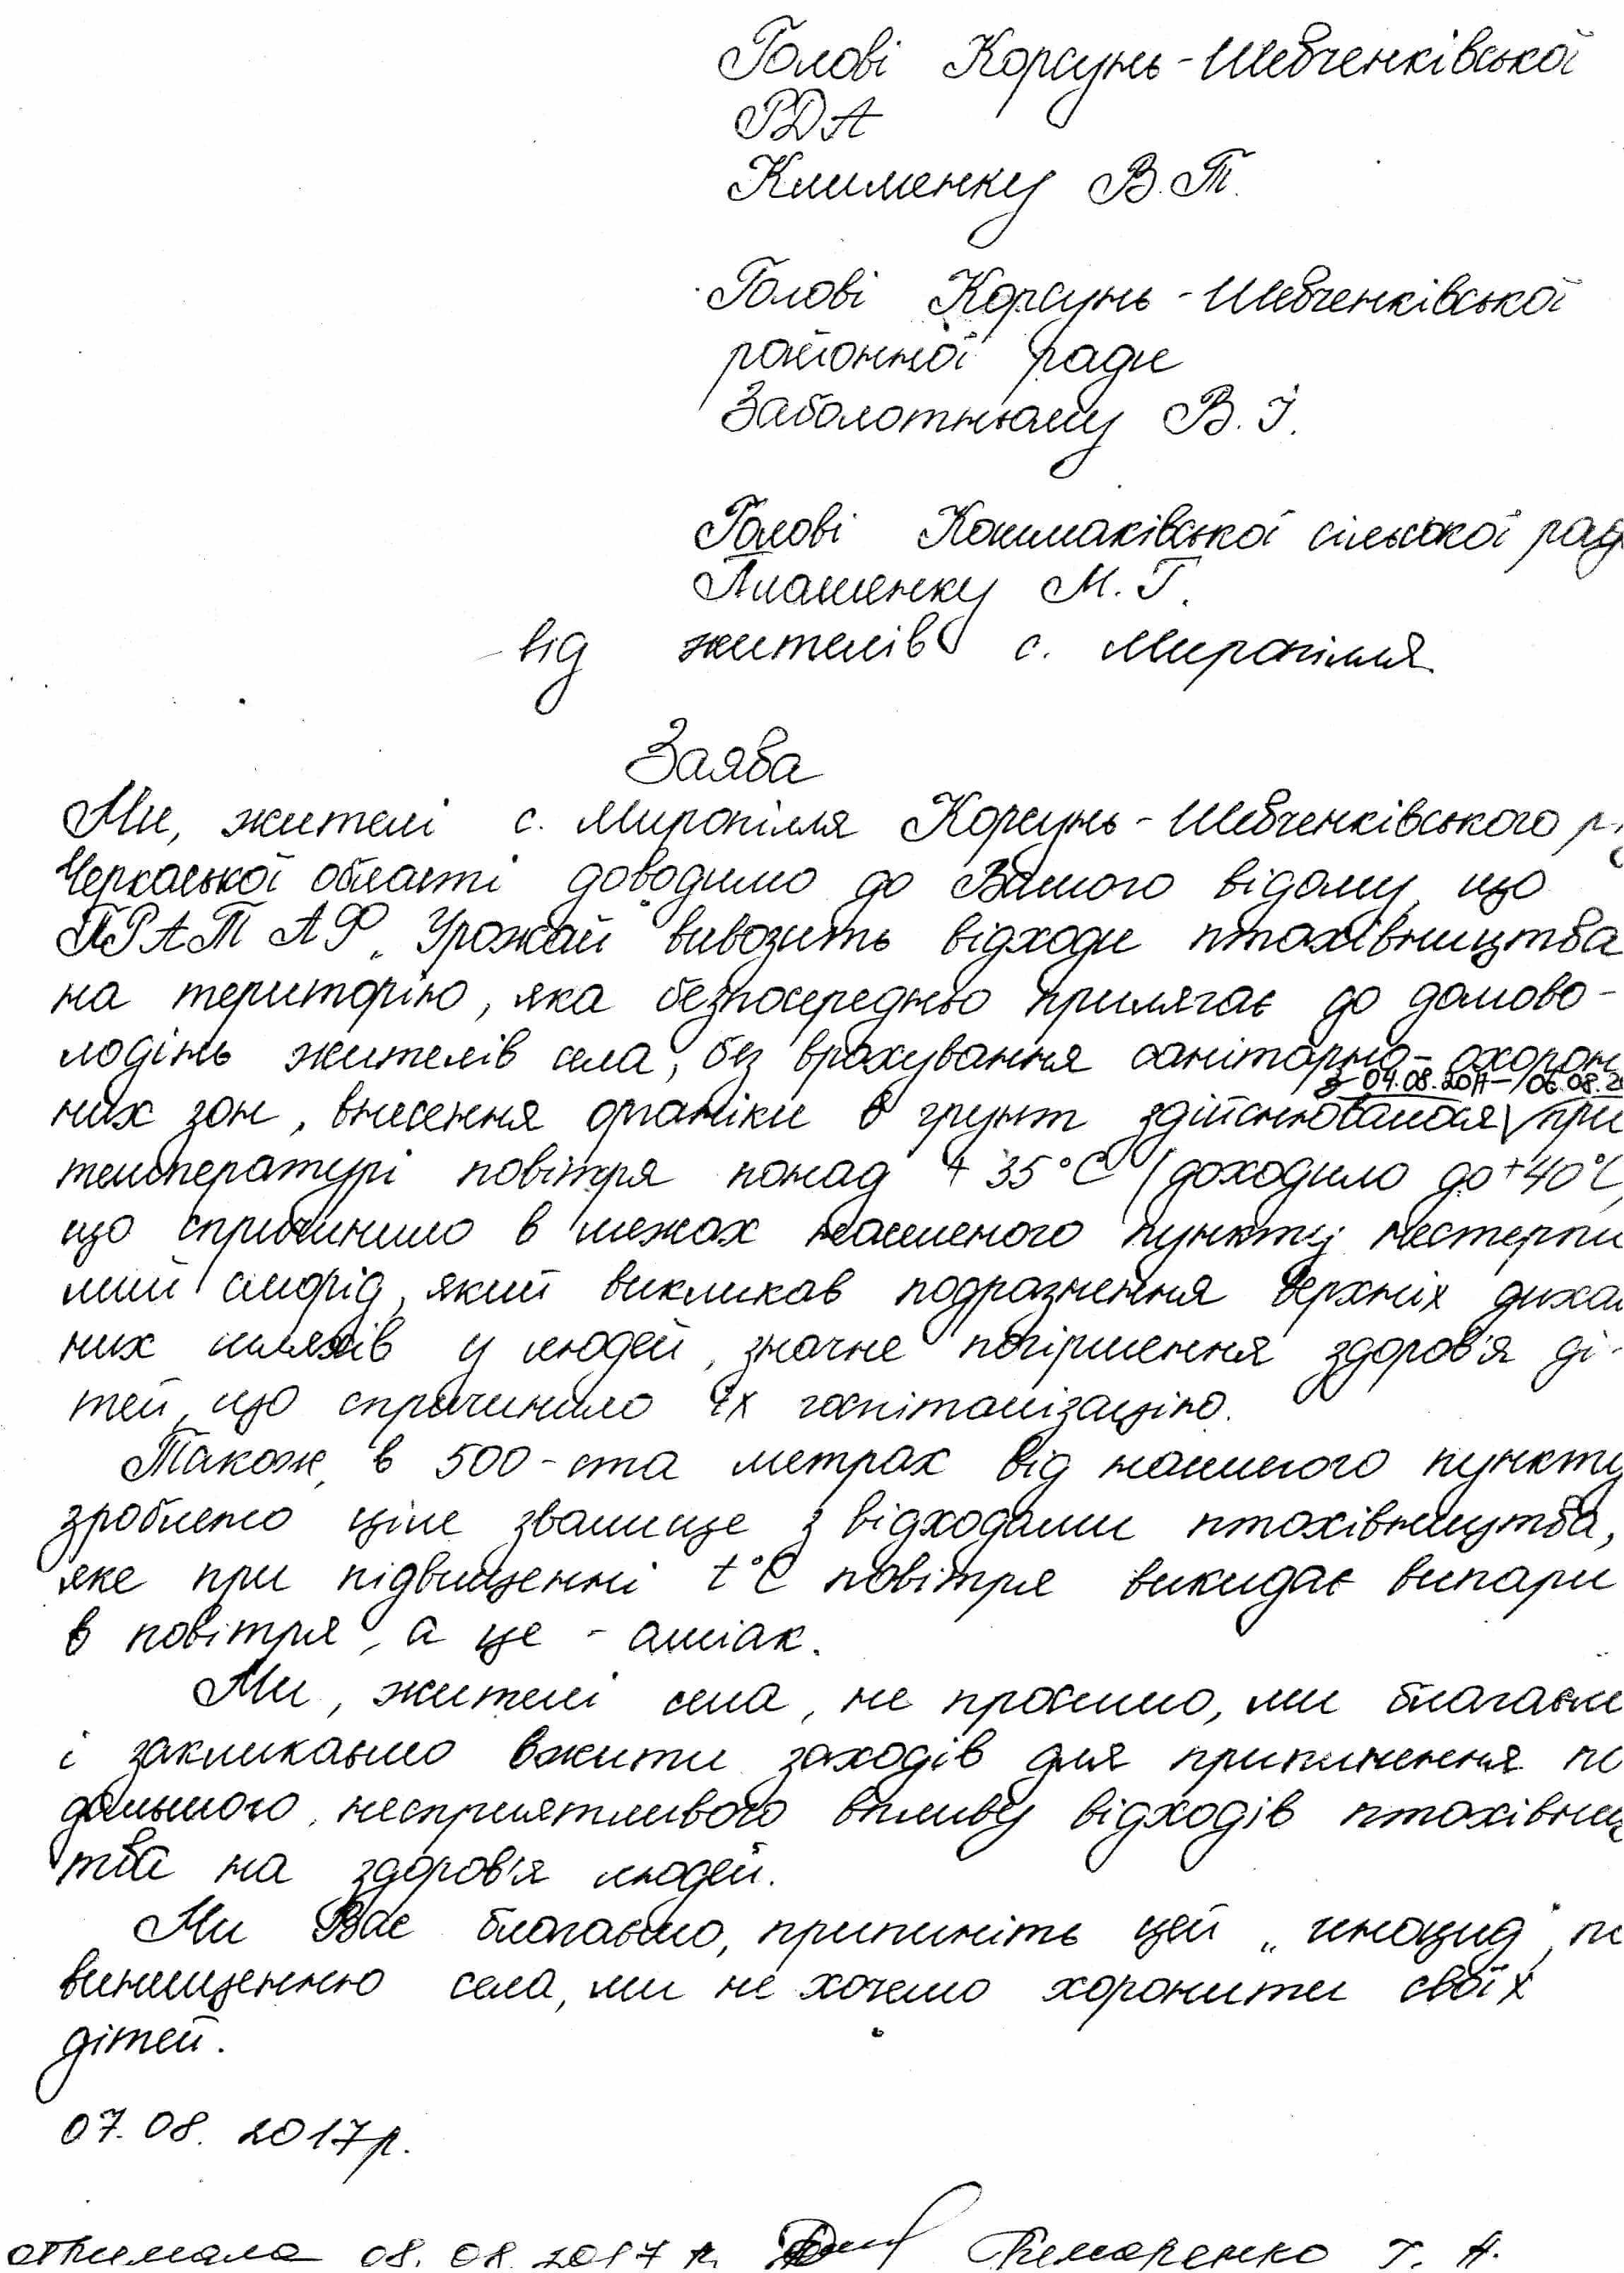 Голові Корсунь-Шевченківської
РДА
Клименку В.Т.
Голові Корсунь-Шевченківської
районної ради
Заболотньому В.І.
Голові Кошмаківської сільської рад
Ляшенку М.Г.
від жителів с. Миропілля
Заява
Ми, жителі с. Миропілля Корсунь-Шевченківського р-
Черкаської області доводимо до Вашого відому, що
ПРАТ АФ „Урожай" вивозить відходи птахівництва
на територію, яка безпосередньо прилягає до домово-
лодінь жителів села, без врахування санітарно-охорон
з 04.08.2017-06.08.20
них зон, внесення органіки в грунт здійснювалася при
температурі повітря понад +35°С (доходило до +40°С,
що спричинило в межах населеного пункту нестерпи
мий сморід, який викликав подразнення верхніх дихал
них шляхів у людей, значне погіршення здоров'я ді-
тей, що спричинило їх госпіталізацію.
Також, в 500-ста метрах від нашого пункту
зроблено ціле звалище з відходами птахівництва,
яке при підвищенні t°C повітря викидає випари
в повітря, а це - аміак.
Ми, жителі села, не просимо, ми благаєм
і закликаємо вжити заходів для припинення по
дальшого несприятливого впливу відходів птахівниц
тва на здоров'я людей.
Ми Вас благаємо, припиніть цей „геноцид" по
винищенню села, ми не хочемо хоронити своїх
дітей.
07.08.2017р.
отримала 08.08.2017 р. Т. А.